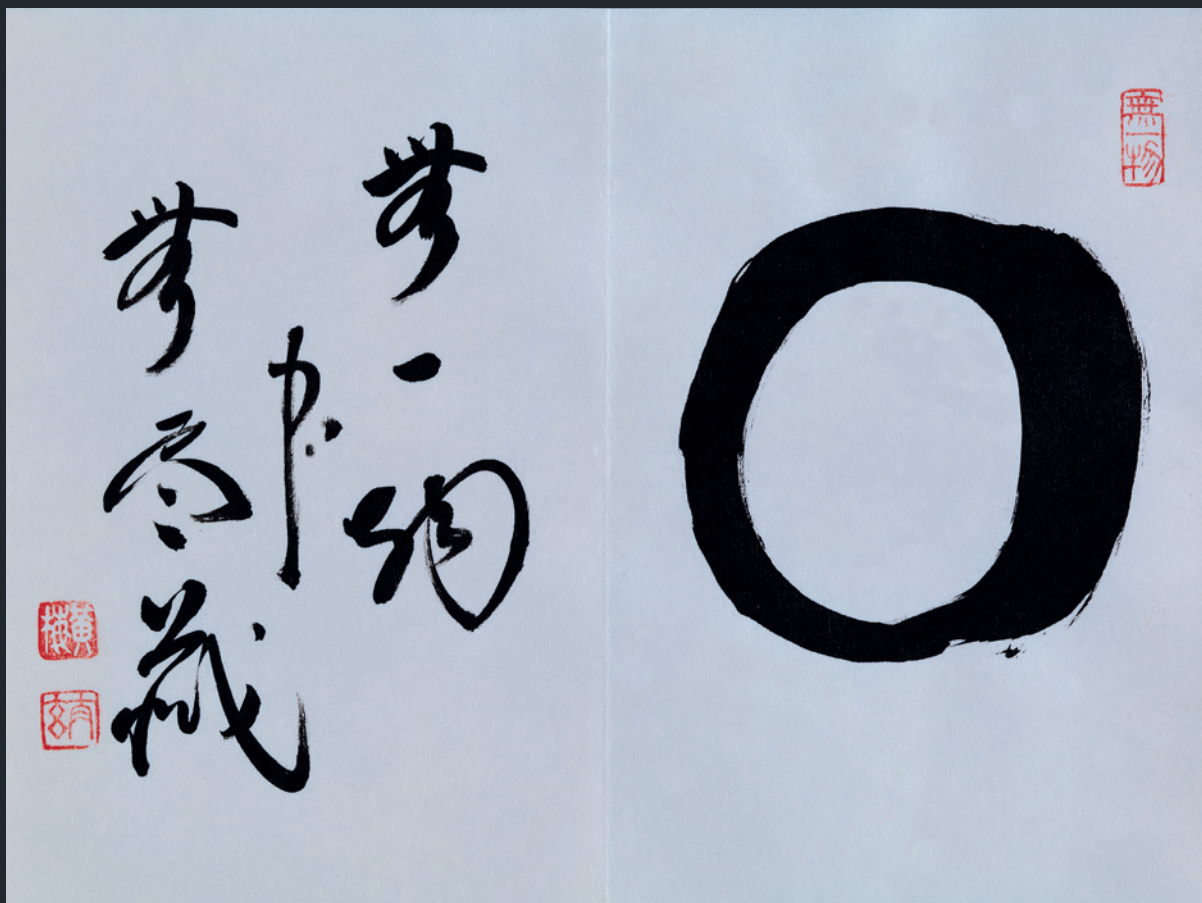 無一物
無一物
中
無尽蔵
黄梅